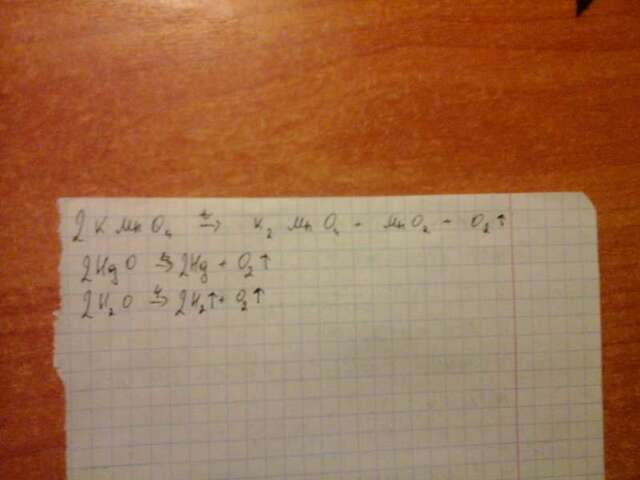 2KMnO₄ →ᵗ K₂MnO₄ + MnO₂ + O₂↑
2HgO →ᵗ 2Hg + O₂↑
2H₂O →ᵗ 2H₂↑ + O₂↑